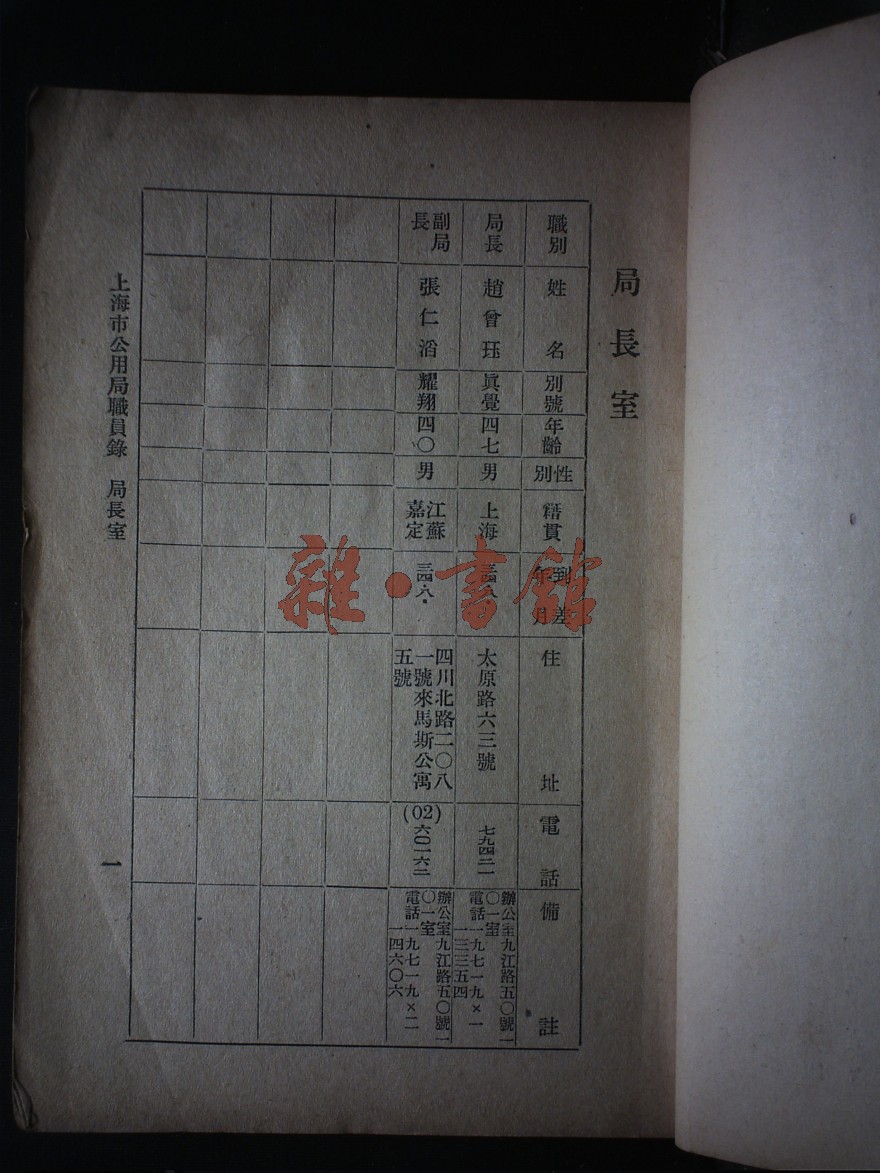 局長室
職別 姓名 別號 年齡 性別 籍貫 到差年月 住址 電話 備註
局長 趙曾珏 眞覺 四七 男 上海 三四·八 太原路六三號 七九四二一 辦公室九江路五〇號一〇一室 電話一九七一九×一 一三三五四
副局長 張仁滔 耀翔 四〇 男 江蘇嘉定 三四·八· 四川北路二〇八一號來馬斯公寓五號 (02)六〇一六二 辦公室九江路五〇號一〇一室 電話一九七一九×二 一四六〇六
上海市公用局職員錄 局長室
一
雜·書館